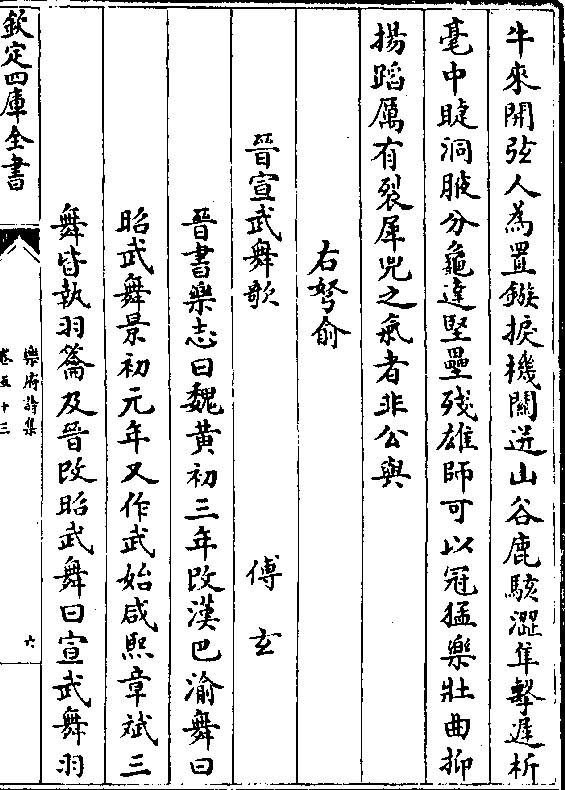 牛來開弦人為置鏃捩機關迸山谷鹿駭澀隼擊遲析
毫中睫洞腋分龜達堅壘殘雄師可以冠猛樂壯曲抑
揚蹈厲有裂犀兕之氣者非公與
右弩俞
晉宣武舞歌 傅玄
晉書樂志曰魏黃初三年改漢巴渝舞曰
昭武舞景初元年又作武始咸熙章斌三
舞皆執羽籥及晉改昭武舞曰宣武舞羽
欽定四庫全書
樂府詩集
卷五十三
六